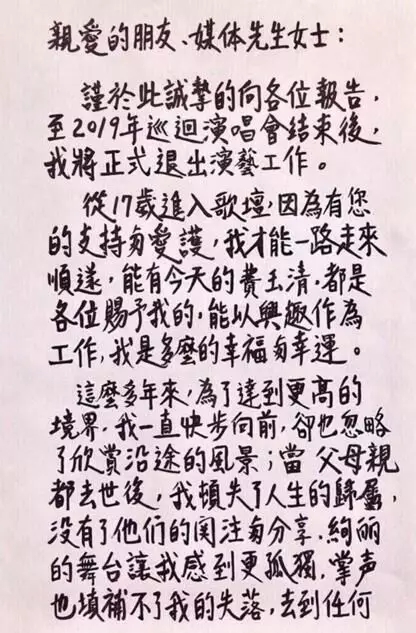 親愛的朋友、媒体先生女士：
謹於此誠摯的向各位報告，
至2019年巡迴演唱會結束後，
我將正式退出演藝工作。
從17歲進入歌壇，因為有您
的支持與愛護，我才能一路走來
順遂，能有今天的費玉清，都是
各位賜予我的，能以興趣作為
工作，我是多麼的幸福與幸運。
這麼多年來，為了達到更高的
境界，我一直快步向前，卻也忽略
了欣賞沿途的風景；當父母親
都去世後，我頓失了人生的歸屬，
沒有了他們的関注與分享，絢麗
的舞台讓我感到更孤獨，掌声
也填補不了我的失落，去到任何